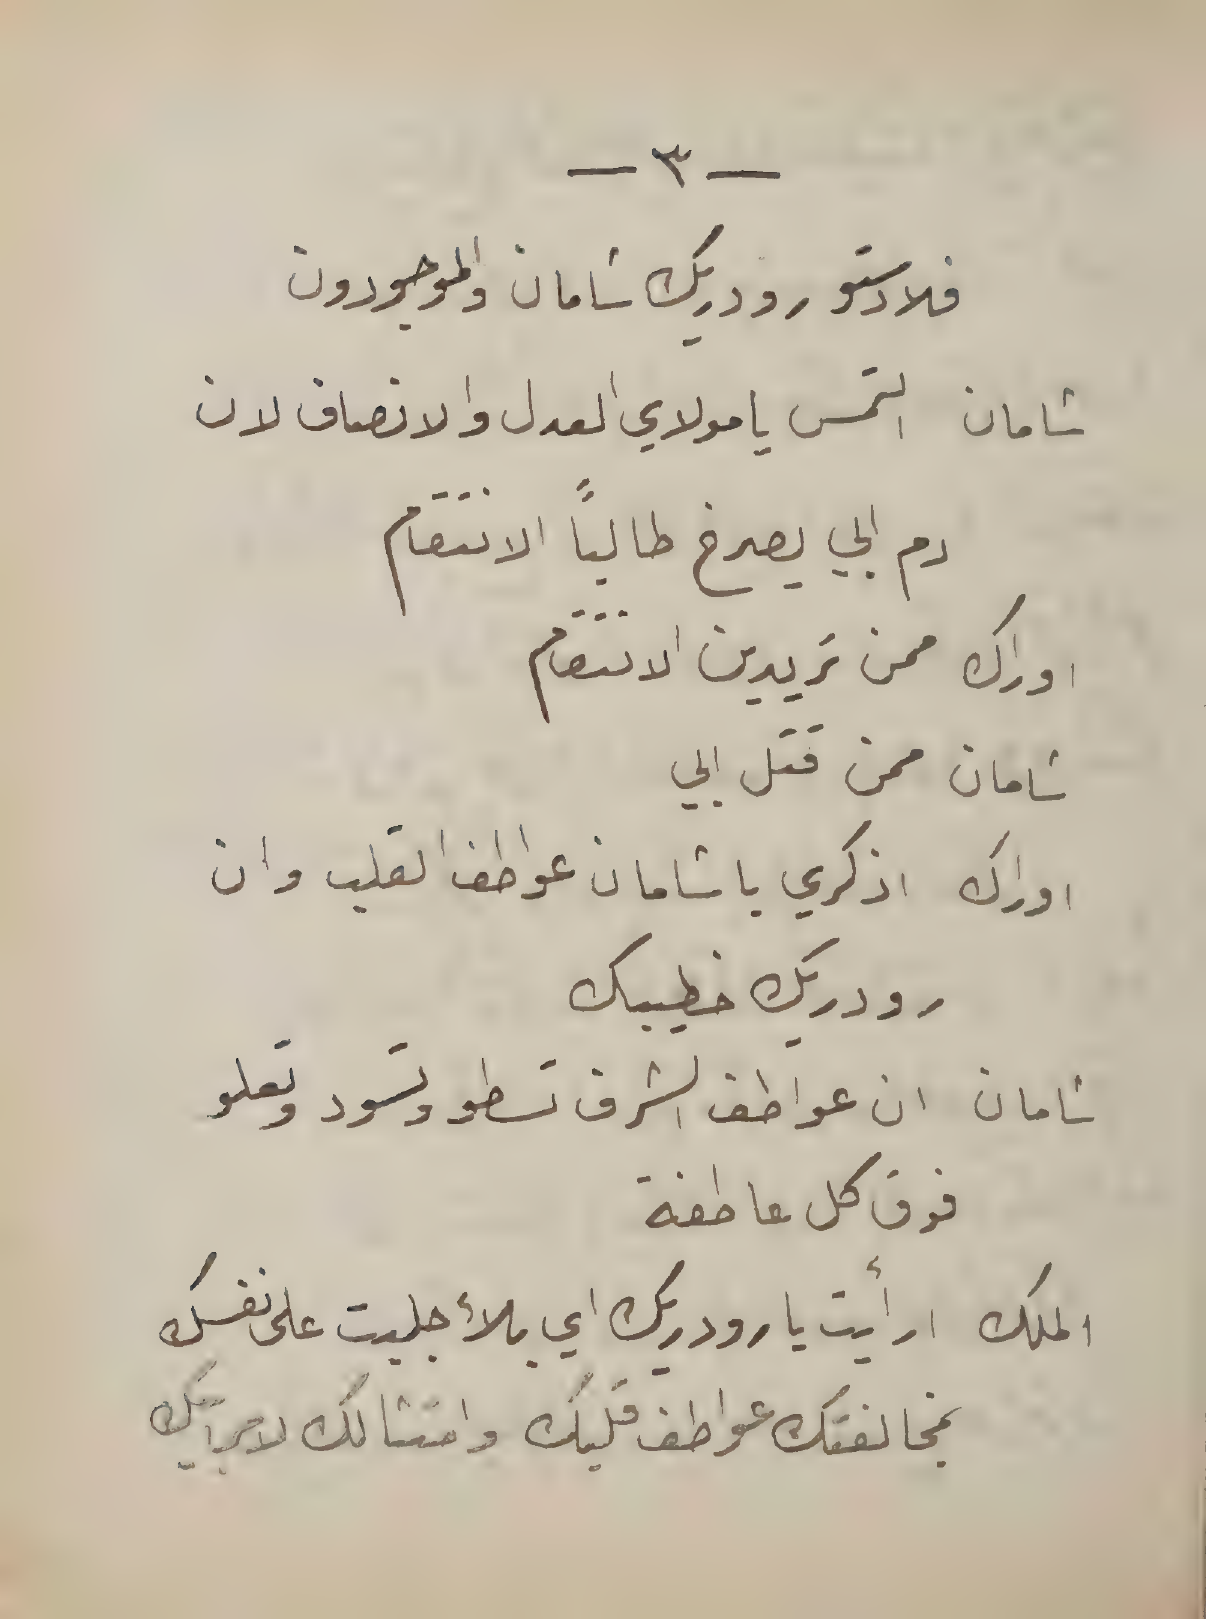 — ٣ —
فلادستو رودريك شامان والموجودون
شامان التمس يا مولاي العدل والانصاف لان
دم ابي يصرخ طالباً الانتقام
اوراك ممن تريدين الانتقام
شامان ممن قتل ابي
اوراك اذكري يا شامان عواطف القلب وان
رودريك خطيبك
شامان ان عواطف الشرف تسطو وتسود وتعلو
فوق كل عاطفة
الملك ارأيت يا رودريك اي بلاء جلبت على نفسك
بمخالفتك عواطف قلبك وامتثالك لامر ابيك